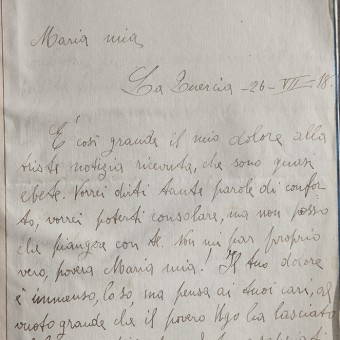 Maria mia,
La Quercia - 26 - VII - 18.
È così grande il mio dolore alla
triste notizia ricevuta, che sono quasi
ebete. Vorrei dirti tante parole di confor
to, vorrei poterti consolare, ma non posso
che piangere con te. Non mi par proprio
vero, povera Maria mia! Il tuo dolore
è immenso, lo so, ma pensa ai tuoi cari, al
vuoto grande che il povero Ugo ha lasciato